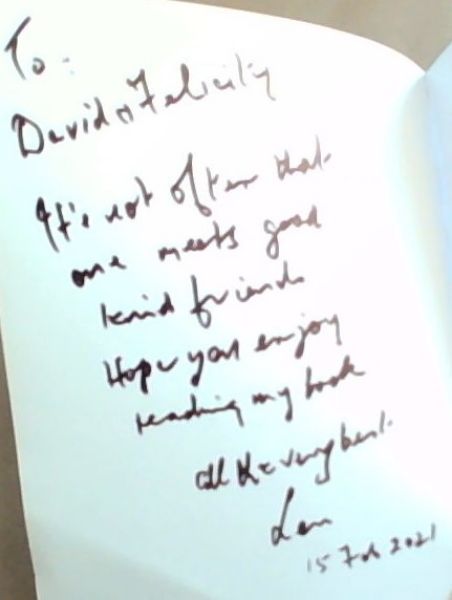 To:
David & Felicity
It's not often that
one meets good
kind friends
Hope you enjoy
reading my book
all the very best.
Len
15 Feb 2021